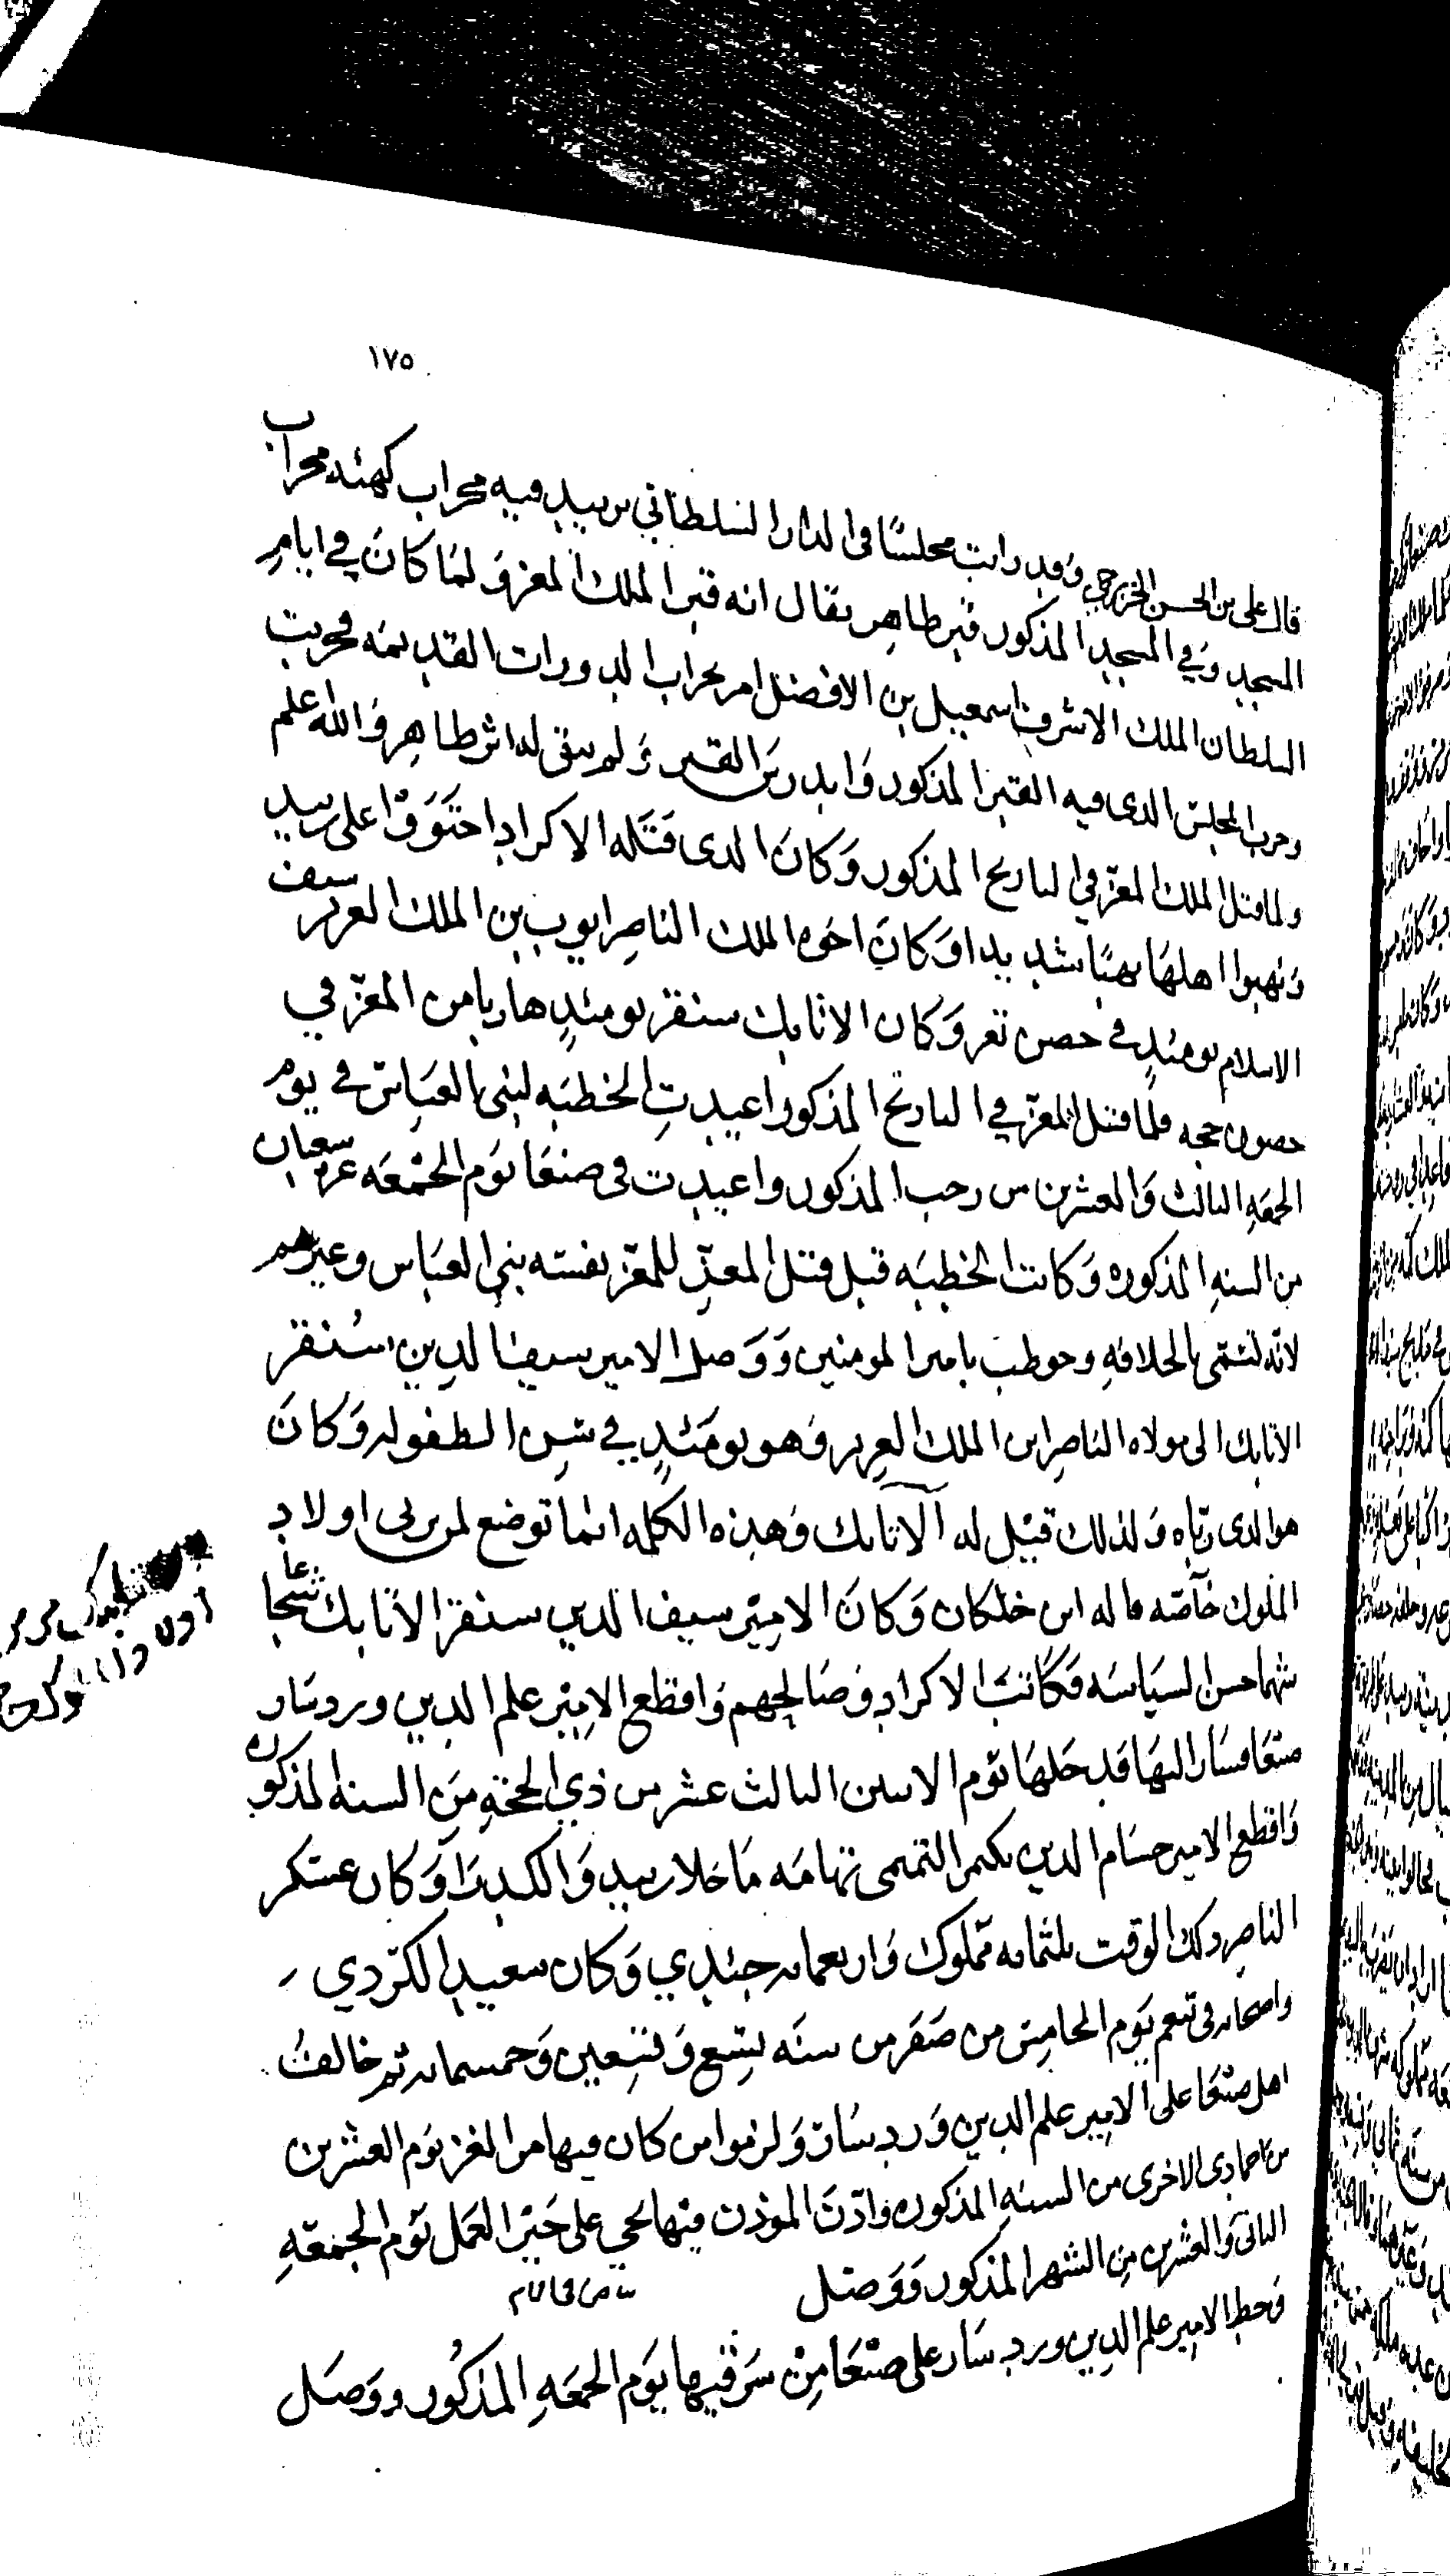 ١٧٥
قال علي بن الحسن الخزرجي وقد رايت مجلسًا في الدار السلطاني بزبيد فيه محراب كهئه محراب
المسجد وفي المسجد المذكور قبر ظاهر يقال انه قبر الملك المعز ولما كان في ايام
السلطان الملك الاشرف اسمعيل بن الافضل امر بخراب الدورات القديمه فخربت
وخرب المجلس الذي فيه القبر المذكور واندرس القبر ولم يبق له اثر ظاهر والله اعلم
ولما قتل الملك المعز في التاريخ المذكور وكان الذي قتله الاكراد احتووا على زبيد
ونهبوا اهلها نهبًا شديدا وكان اخوه الملك الناصر ايوب بن الملك العزيز سيف
الاسلام يومئذٍ في حصن تعز وكان الاتابك سنقر يومئذٍ هاربا من المعز في
حصون حجه فلما قتل المعز في التاريخ المذكور اعيدت الخطبه لبني العباس في يوم
الجمعه الثالث والعشرين من رجب المذكور واعيدت في صنعا يوم الجمعه غره شعبان
من السنه المذكوره وكانت الخطبه قبل قتل المعز للمعز بفسته بني العباس وغيرهم
لانه تسمى بالخلافه وخوطب بامير المومنين ووصل الامير سيف الدين سنقر
الاتابك الى مولاه الناصر ابن الملك العزيز وهو يومئذٍ في سن الطفوله وكان
هو الذي رباه ولذلك قيل له الاتابك وهذه الكلمه انما توضع لمن يربي اولاد
الملوك خاصه قاله ابن خلكان وكان الامير سيف الدين سنقر الاتابك شجاعا
شهما حسن السياسه فكاتب الاكراد وصالحهم واقطع الامير علم الدين وردسار
صنعا فسار اليها فدخلها يوم الاثنين الثالث عشر من ذي الحجه من السنه المذكوره
واقطع الامير حسام الدين بكتمر التهامه ما خلا زبيد والكدرا وكان عسكر
الناصر ذلك الوقت ثلثمائه مملوك واربعمائه جندي وكان سعيد الكردي
واصحابه في تنعم يوم الخامس من صفر من سنه تسع وتسعين وخمسمائه ثم خالف
اهل صنعا على الامير علم الدين وردسار ولزموا من كان فيها من الغز يوم العشرين
من جمادى الاخرى من السنه المذكوره واذن الموذن فيها بحي على خير العمل يوم الجمعه
الثاني والعشرين من الشهر المذكور ووصل
وحط الامير علم الدين وردسار على صنعا من شرقيها يوم الجمعه المذكور ووصل